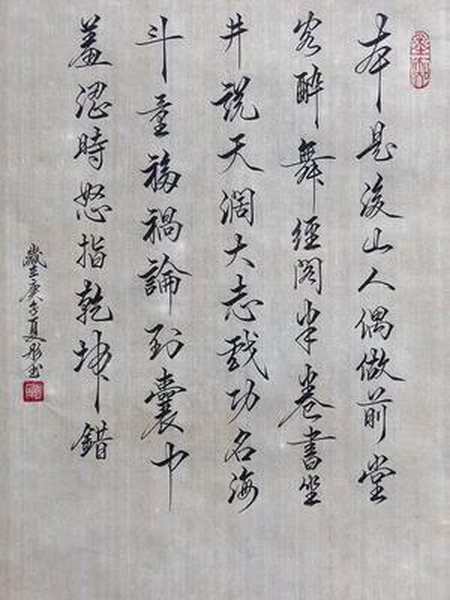 本是後山人偶做前堂
客醉舞經閣半卷書坐
井説天闊大志戲功名海
斗量福禍論到囊中
羞涩時怒指乾坤錯
歲在庚子夏彤书